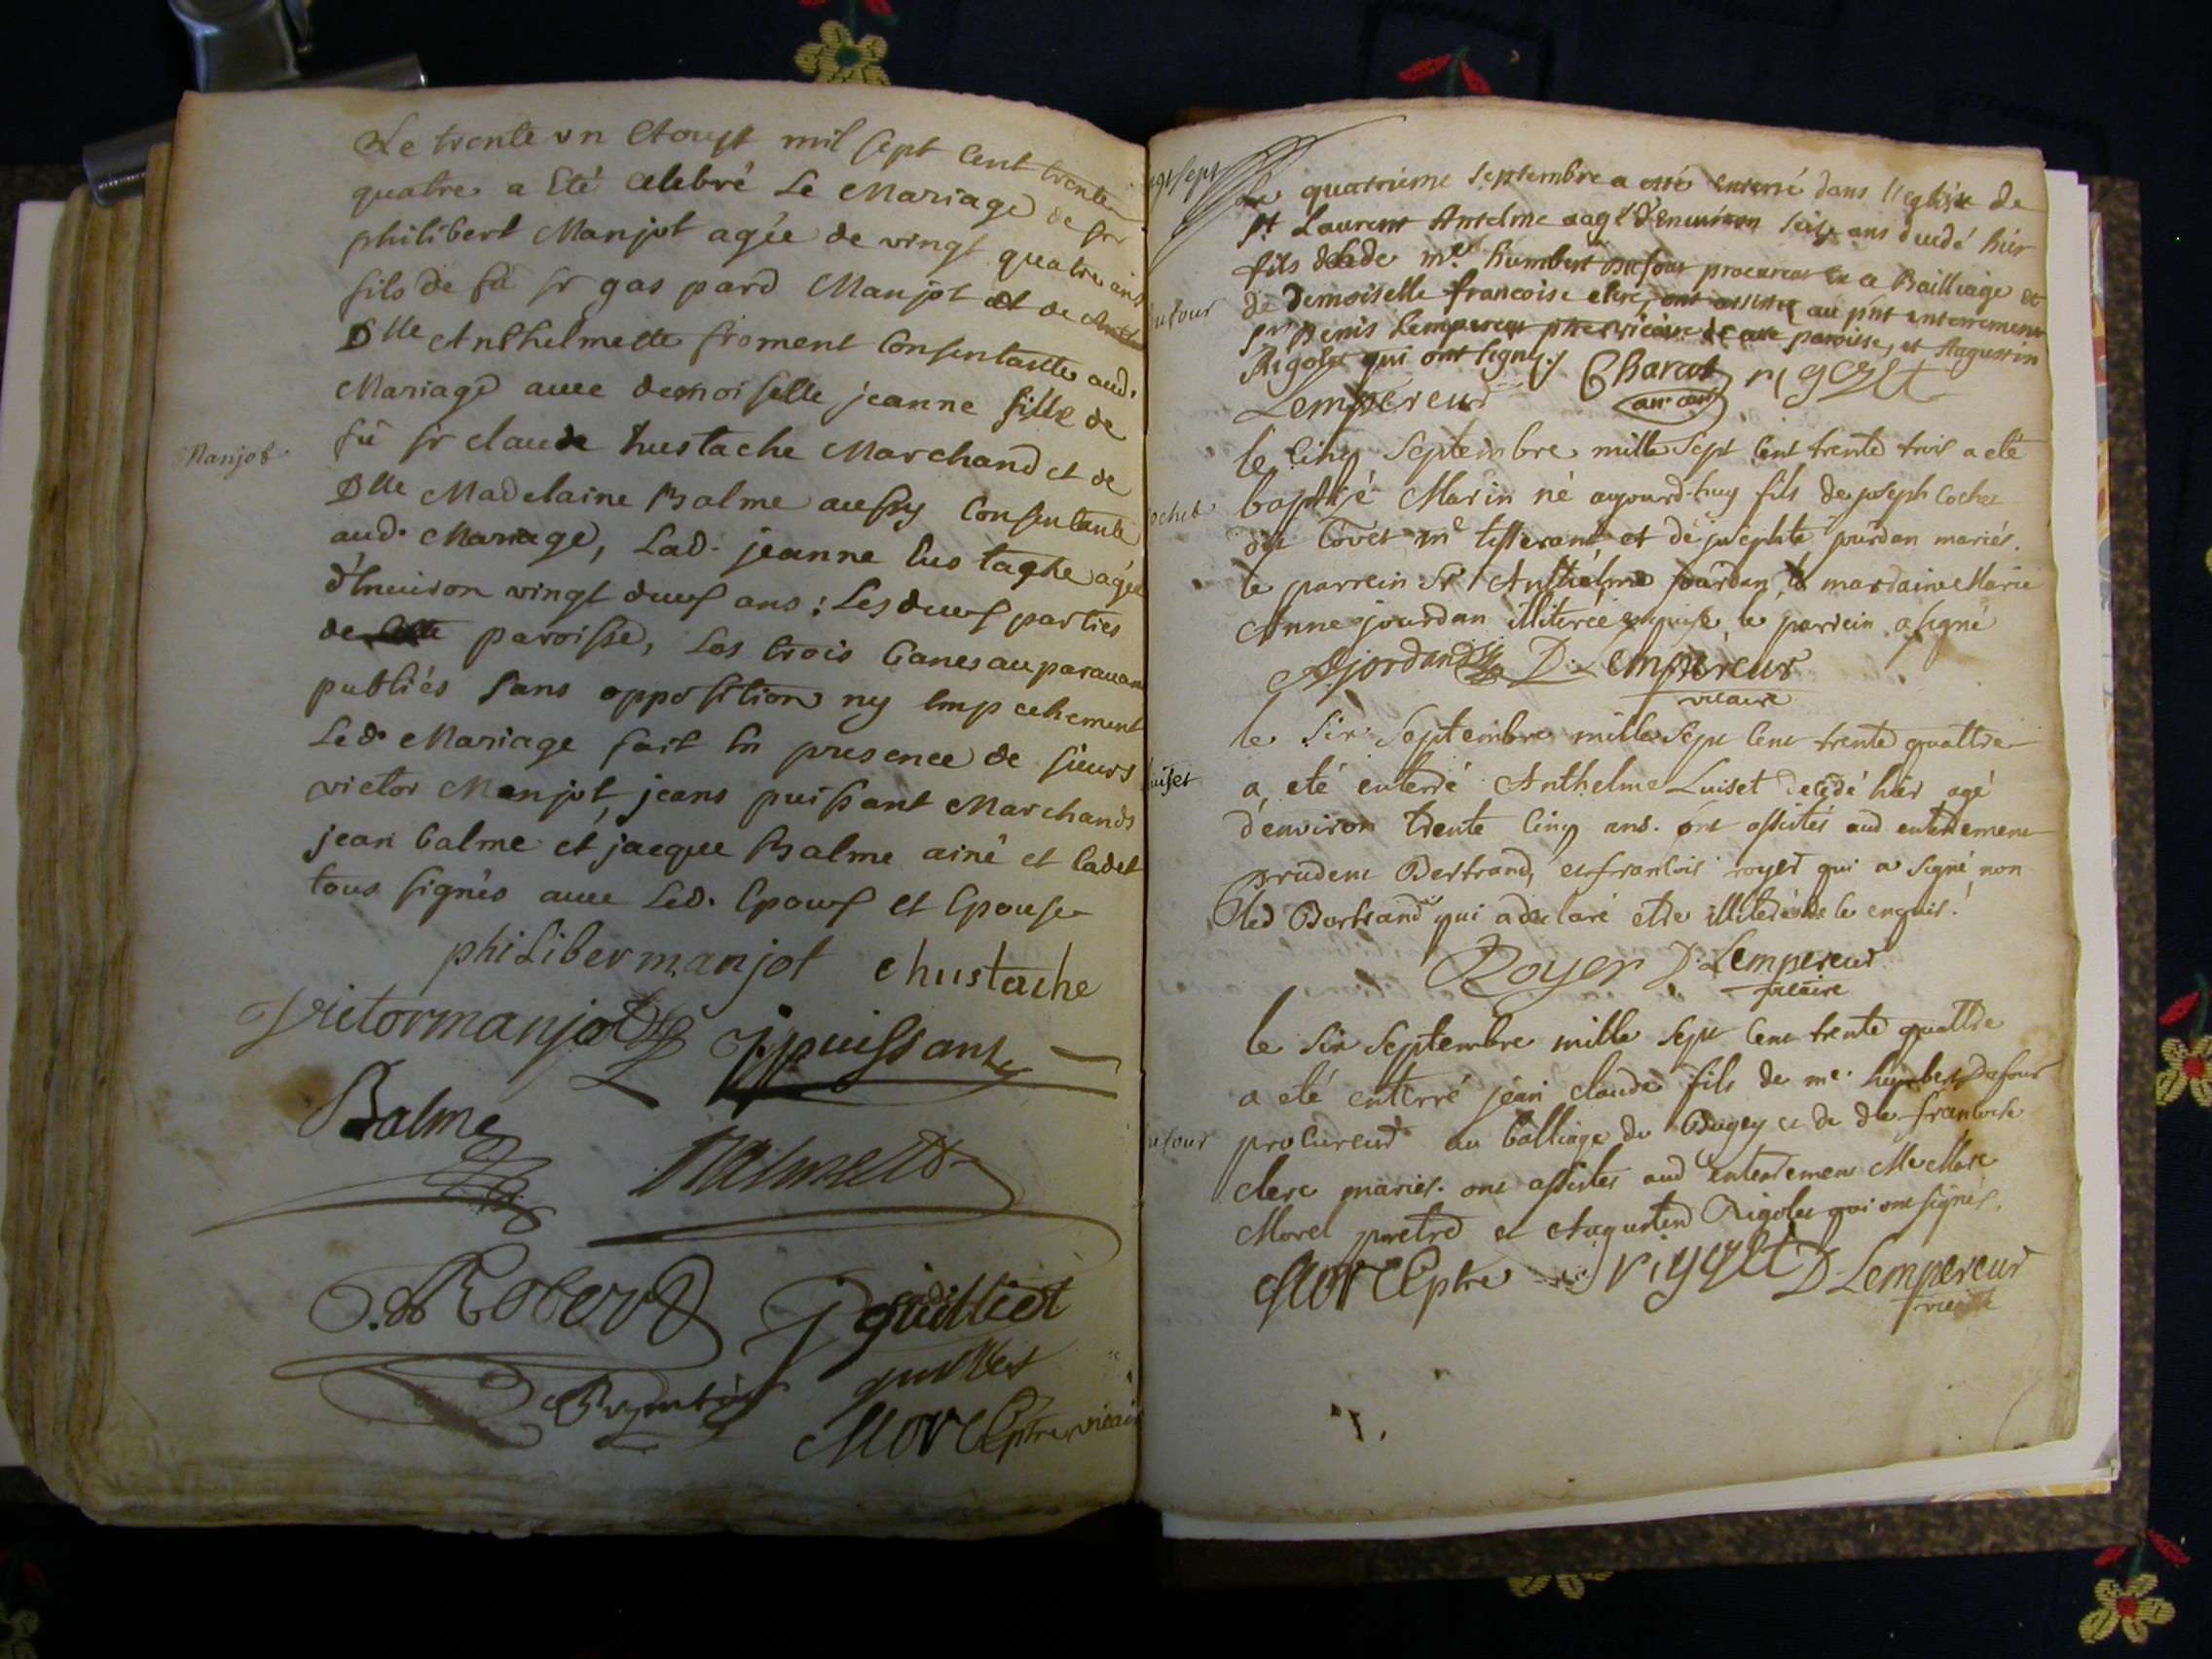 Le trente un Aoust mil sept cent trente
quatre a Eté celebré Le Mariage de sr
philibert Manjot agée de vingt quatre ans
fils de fû sr gas pard Manjot et de
Dlle Anthelmette froment Consentante aud.
Mariage avec demoiselle jeanne fille de
fû sr claude hustache Marchand et de
Manjot
Dlle Madelaine Balme aussy Consentante
aud. Mariage, Lad. jeanne Eustache agée
d'Environ vingt deux ans : Les deux parties
de paroisse, Les trois banes auparavant
publiés sans opposition ny Empechement
Led. Mariage fait En presence de sieurs
victor Manjot, jean puissant Marchands
jean balme et jacque Balme ainé et Cadet
tous signés avec Led. Epoux et Epouse
philiber manjot Ehustache
Victor manjot j puissant
Balme
Robert j guilliet
Morel ptre vicaire
Le quatrieme septembre a esté enterré dans l'eglise de
st Laurent Anselme aagé d'environ seize ans decedé hier
fils de me humbert Dufour procureur en ce Bailliage et
dufour
de Demoiselle francoise clerc, ont assisté au pnt enterrement
sr Denis Lempereur ptre vicaire de cette paroisse, et Augustin
Rigolet qui ont signé./.
Lempereur Charcot rigolet
le cinq Septembre mille sept cent trente trois a eté
baptisé Marin né aujourd-huy fils de joseph Cochet
Cochet
dit Covet me tisserant et de josephte jourdan mariés.
le parrein Sr Anthelme jourdan, la marraine Marie
Anne jourdan illiterée enquise, le parrein a signé
A jordan D. Lempereur
vicaire
le Six Septembre mille Sept cent trente quattre
Luiset
a eté enterré Anthelme Luiset decedé hier agé
d'environ trente cinq ans. ont assistés aud enterrement
prudent Bertrand, et francois royer qui a signé non
led Bertrand qui a declaré etre illiteré de ce enquis.
Royer D. Lempereur
vicaire
le Six Septembre mille Sept cent trente quattre
a eté enterré jean claude fils de me. humbert Dufour
dufour
procureur au balliage du Bugey et de dlle francoise
clerc mariés. ont assistés aud enterrement Me Marc
Morel pretre et Augustin Rigolet qui ont signés.
Morel ptre rigolet D. Lempereur
vicaire